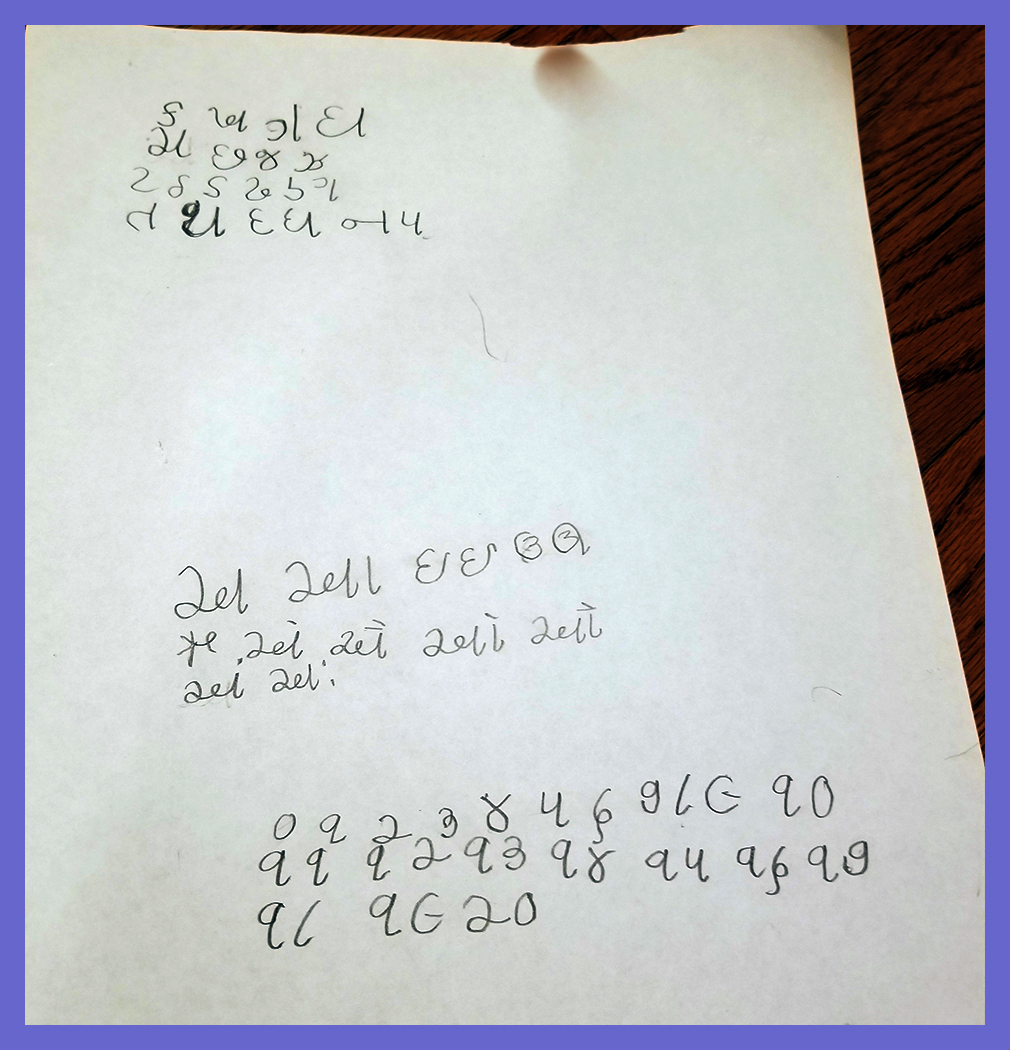 ક ખ ગ ઘ
ચ છ જ ઝ
ટ ઠ ડ ઢ ણ
ત થ દ ધ ન પ
અ આ ઇ ઈ ઉ ઊ
ઋ એ ઐ ઓ ઔ
અં અઃ
૦ ૧ ૨ ૩ ૪ ૫ ૬ ૭ ૮ ૯ ૧૦
૧૧ ૧૨ ૧૩ ૧૪ ૧૫ ૧૬ ૧૭
૧૮ ૧૯ ૨૦